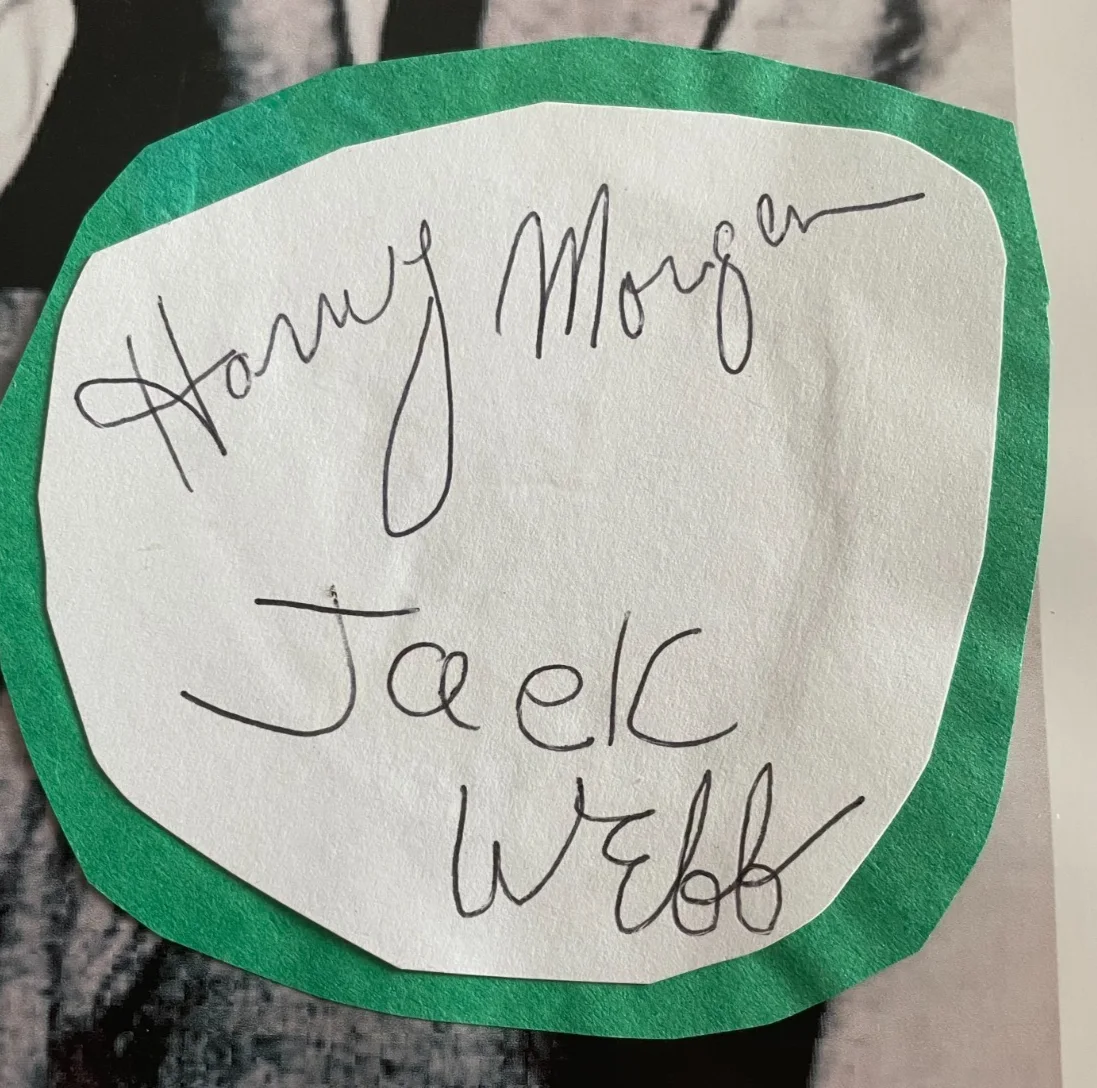 Harry Morgan
Jack
Webb